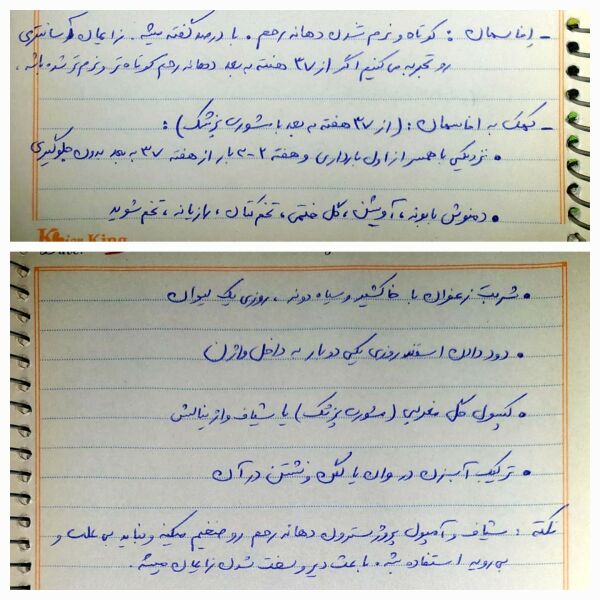 - افاسمان : کوتاه و نرم شدن دهانه رحم . با درصد گفته میشه . زایمان آسانتری
رو تجربه می کنیم اگر از ۳۷ هفته به بعد دهانه رحم کوتاه تر و نرم تر شده باشه .
- کمک به افاسمان : (از ۳۷ هفته به بعد با مشورت پزشک) :
• نزدیکی با همسر از اول بارداری و هفته ۲-۳ بار از هفته ۳۷ به بعد بدون جلوگیری
• دمنوش بابونه ، آویشن ، گل ختمی ، تخم کتان ، رازیانه ، تخم شوید
• شربت زعفران با خاکشیر و سیاه دونه ، روزی یک لیوان
• دود دادن اسفند روزی یکی دو بار به داخل واژن
• کپسول گل مغربی (مشورت پزشک) یا شیاف واژینالش
• ترکیب آبزن در وان یا لگن و نشستن در آن
نکته : شیاف و آمپول پروژسترون دهانه رحم رو ضخیم میکنه و نباید بی علت و
بی رویه استفاده بشه . باعث دیر و سفت شدن زایمان میشه .